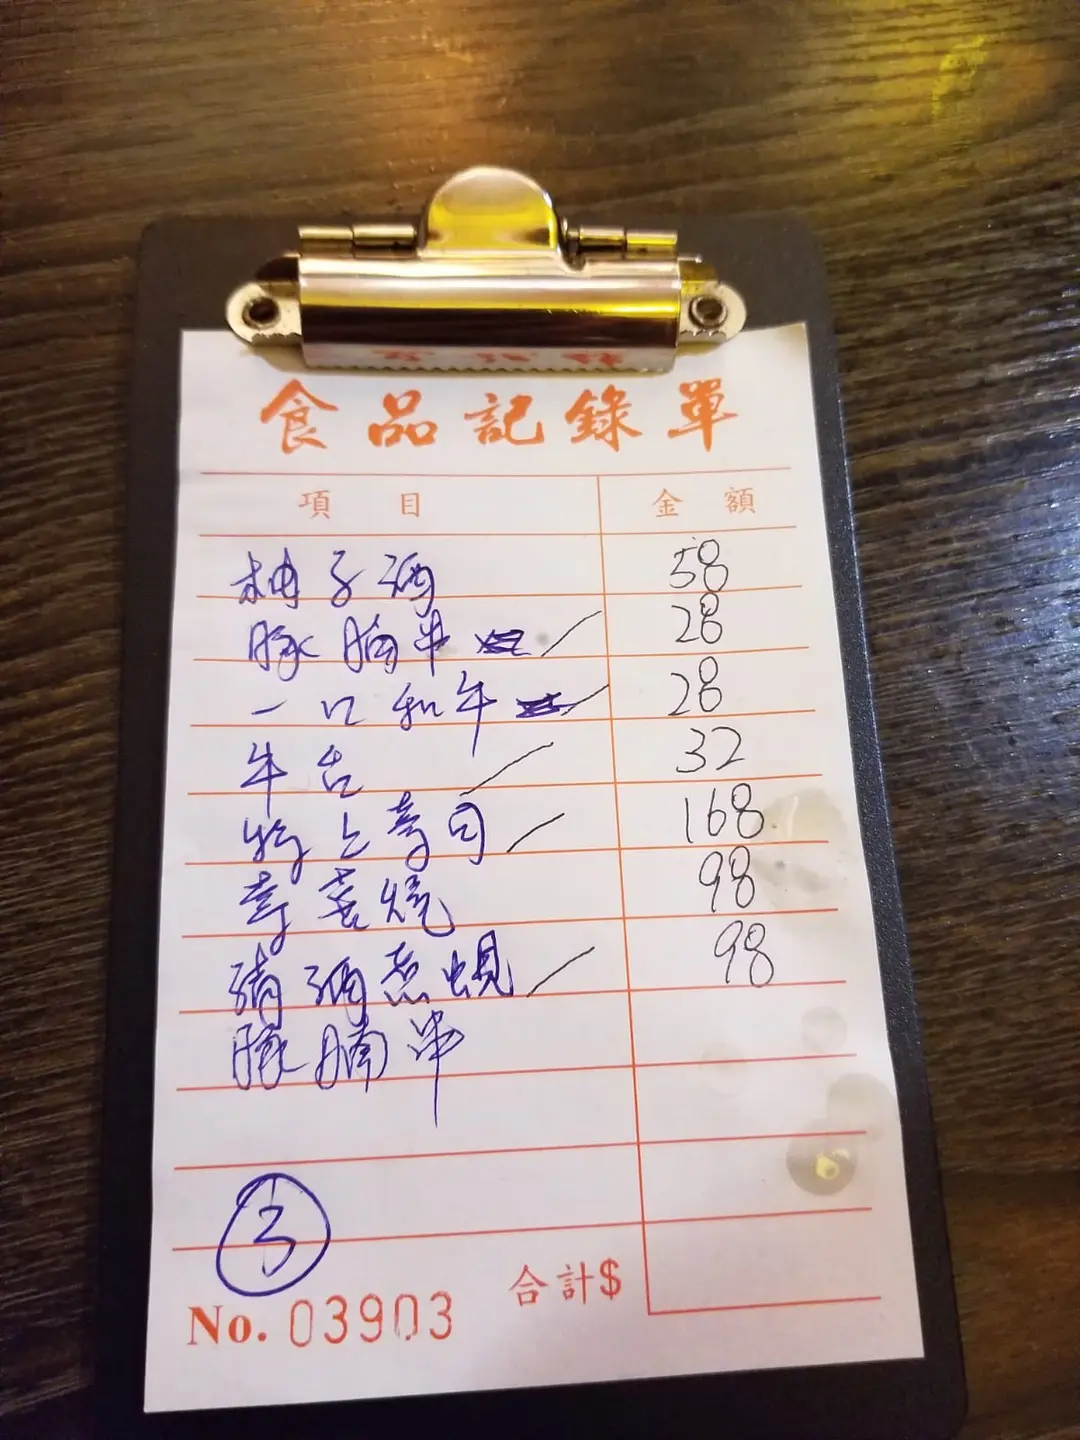 食品記錄單
項目 金額
柚子酒 58
豚腩串 28
一口和牛 28
牛舌 32
特上寿司 168
寿喜烧 98
清酒煮蜆 98
豚腩串
3
No. 03903 合計$